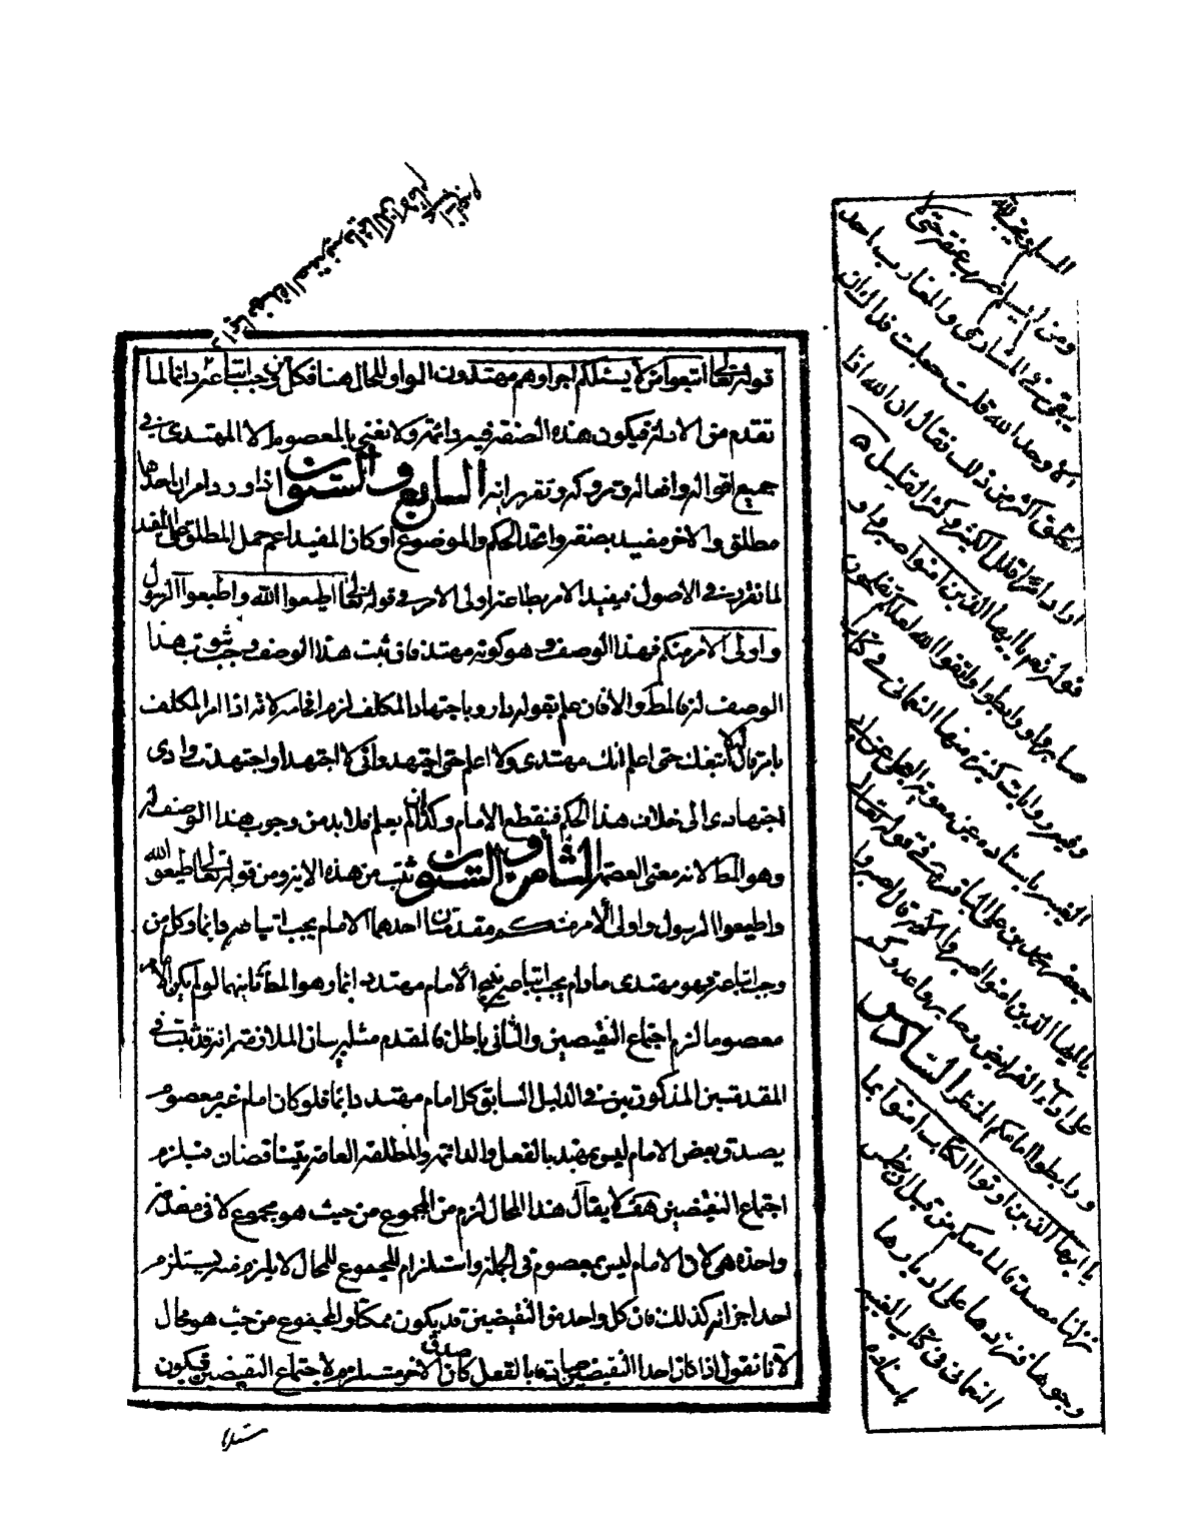 قوله تعالى اتبعوا من لا يسئلكم اجرا وهم مهتدون الواو للحال هنا فكل من وجب اتباعه دائما لما
تقدم من الادلة فيكون هذه الصفة فيه دائمة ولا نعنى بالمعصوم الا المهتدى فى
جميع اقواله وافعاله وتروكه وتقريراته السابع والستون اذا ورد امران احدهما
مطلق والاخر مقيد بصفة واتحد الحكم والموضوع او كان المقيد اعم حمل المطلق على المقيد
لما تقرر فى الاصول فيقيد الامر بطاعة اولى الامر فى قوله تعالى اطيعوا الله واطيعوا الرسول
واولى الامر منكم فهذا الوصف وهو كونه مهتد فان ثبت هذا الوصف وجب ثبوت هذا
الوصف لزم المط والا فان علم بقوله دار وباجتهاد المكلف لزم افحامه لانه اذا امر المكلف
بامر قال له لا اتبعك حتى اعلم انك مهتدى ولا اعلم حتى اجتهد وانى لا اجتهد او اجتهدت وادى
اجتهادى الى خلاف هذا الحكم فينقطع الامام وكذا ان لم يعلم فلابد من وجوب هذا الوصف له
وهو المط لانه معنى العصمة الثامن والستون ثبت من هذه الاية ومن قوله تعالى اطيعوا الله
واطيعوا الرسول واولى الامر منكم مقدمتان احدهما الامام يجب اتباعه دائما وكل من
وجب اتباعه فهو مهتدى ما دام يجب اتباعه ينتج الامام مهتد دائما وهو المط ثانيهما لو لم يكن الامام
معصوما لزم اجتماع النقيضين والثانى باطل فالمقدم مثله بيان الملازمة انه قد ثبت فى
المقدمتين المذكورتين فى الدليل السابق كل امام مهتد دائما فلو كان امام غير معصوم
يصدق بعض الامام ليس بمهتد بالفعل والدائمة والمطلقة العامة يتناقضان فيلزم
اجتماع النقيضين هف لا يقال هذا المحال لزم من المجموع من حيث هو مجموع لا فى مقدمة
واحدة هى كلاذ الامام ليس بمعصوم فى الجملة واستلزام المجموع للمحال لا يلزم منه يستلزم
احد اجزائه كذلك فان كل واحد من النقيضين قد يكون ممكنا والمجموع من حيث هو محال
لانا نقول اذا كان احد النقيضين صادقا بالفعل كان صدق الاخر مستلزم لاجتماع النقيضين فيكون
ومن ايسلم ضرب عنقه حتى لا
يبقى فى المشارق والمغارب احد
الا وحد الله قلت جعلت فداك ان
الخلق اكثر من ذلك فقال ان الله اذا
اراد امرا قلل الكثير وكثر القليل
قوله تعم يا ايها الذين امنوا اصبروا و
صابروا ورابطوا واتقوا الله لعلكم تفلحون
وفيه روايات كثير منها النعمانى فى كتاب
الغيبة باسناده عن معوية العجلى عن ابى
جعفر محمد بن على الباقر ع فى قوله تعالى
يا ايها الذين امنوا اصبروا الاية قال اصبروا
على اداء الفرايض وصابروا عدوكم
ورابطوا امامكم المنتظر السادس
يا ايها الذين اوتوا الكتاب امنوا بما
نزلنا مصدقا لما معكم من قبل ان نطمس
وجوها فنردها على ادبارها
النعمانى فى كتاب الغيبة
باسناده